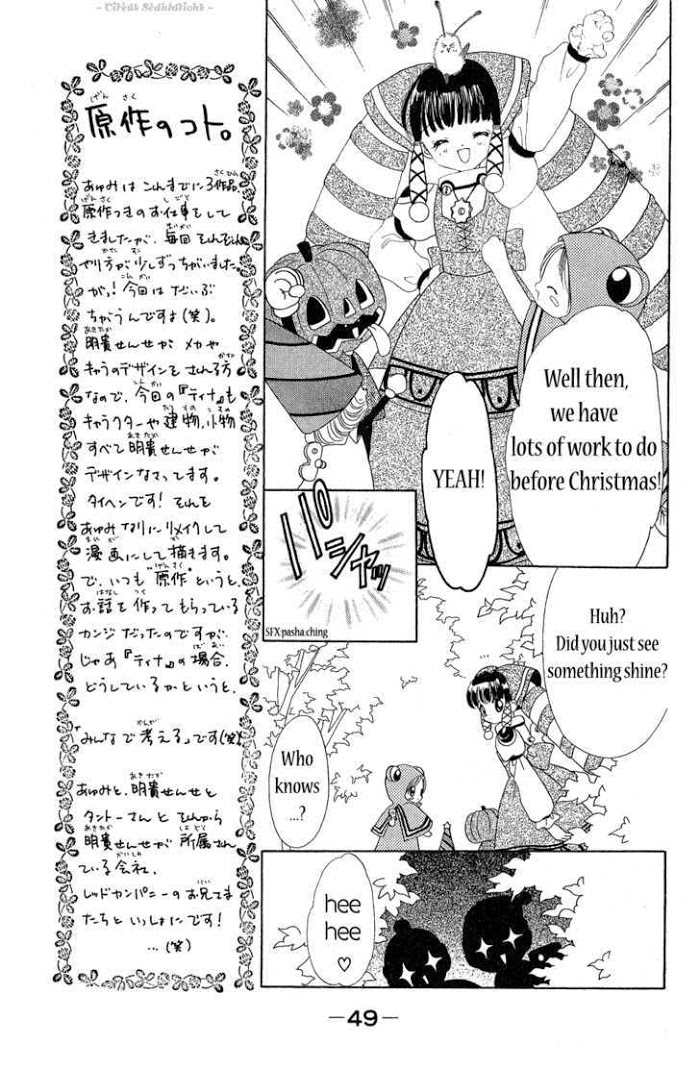 原作のコト。
あゆみは これまでに3作品
原作つきのお仕事をして
きましたが、毎回 それぞれ
やり方が少しずつちがいました。
がっ! 今回は だいぶ
ちがうんですよ(笑)。
明貴せんせが メカや
キャラのデザインを される方
なので、今回の『ティナ』も
キャラクターや 建物、小物
すべて 明貴せんせが
デザインなさってます。
タイヘンです! それを
あゆみなりにリメイクして
漫画にして描きます。
で、いつも "原作" というと、
お話を 作って もらっている
カンジ だったのですが、
じゃあ『ティナ』の場合、
どうしているか というと、
「みんなで 考える」です(笑)
あゆみと、明貴せんせと
タントーさんと それから
明貴せんせが 所属され
ている 会社、
レッドカンパニーのお兄さま
たちと いっしょにです!
…(笑)
Well then,
we have
lots of work to do
before Christmas!
YEAH!
パシャッ
SFX:pasha:ching
Huh?
Did you just see
something shine?
Who
knows
...?
hee
hee
♡
-49-